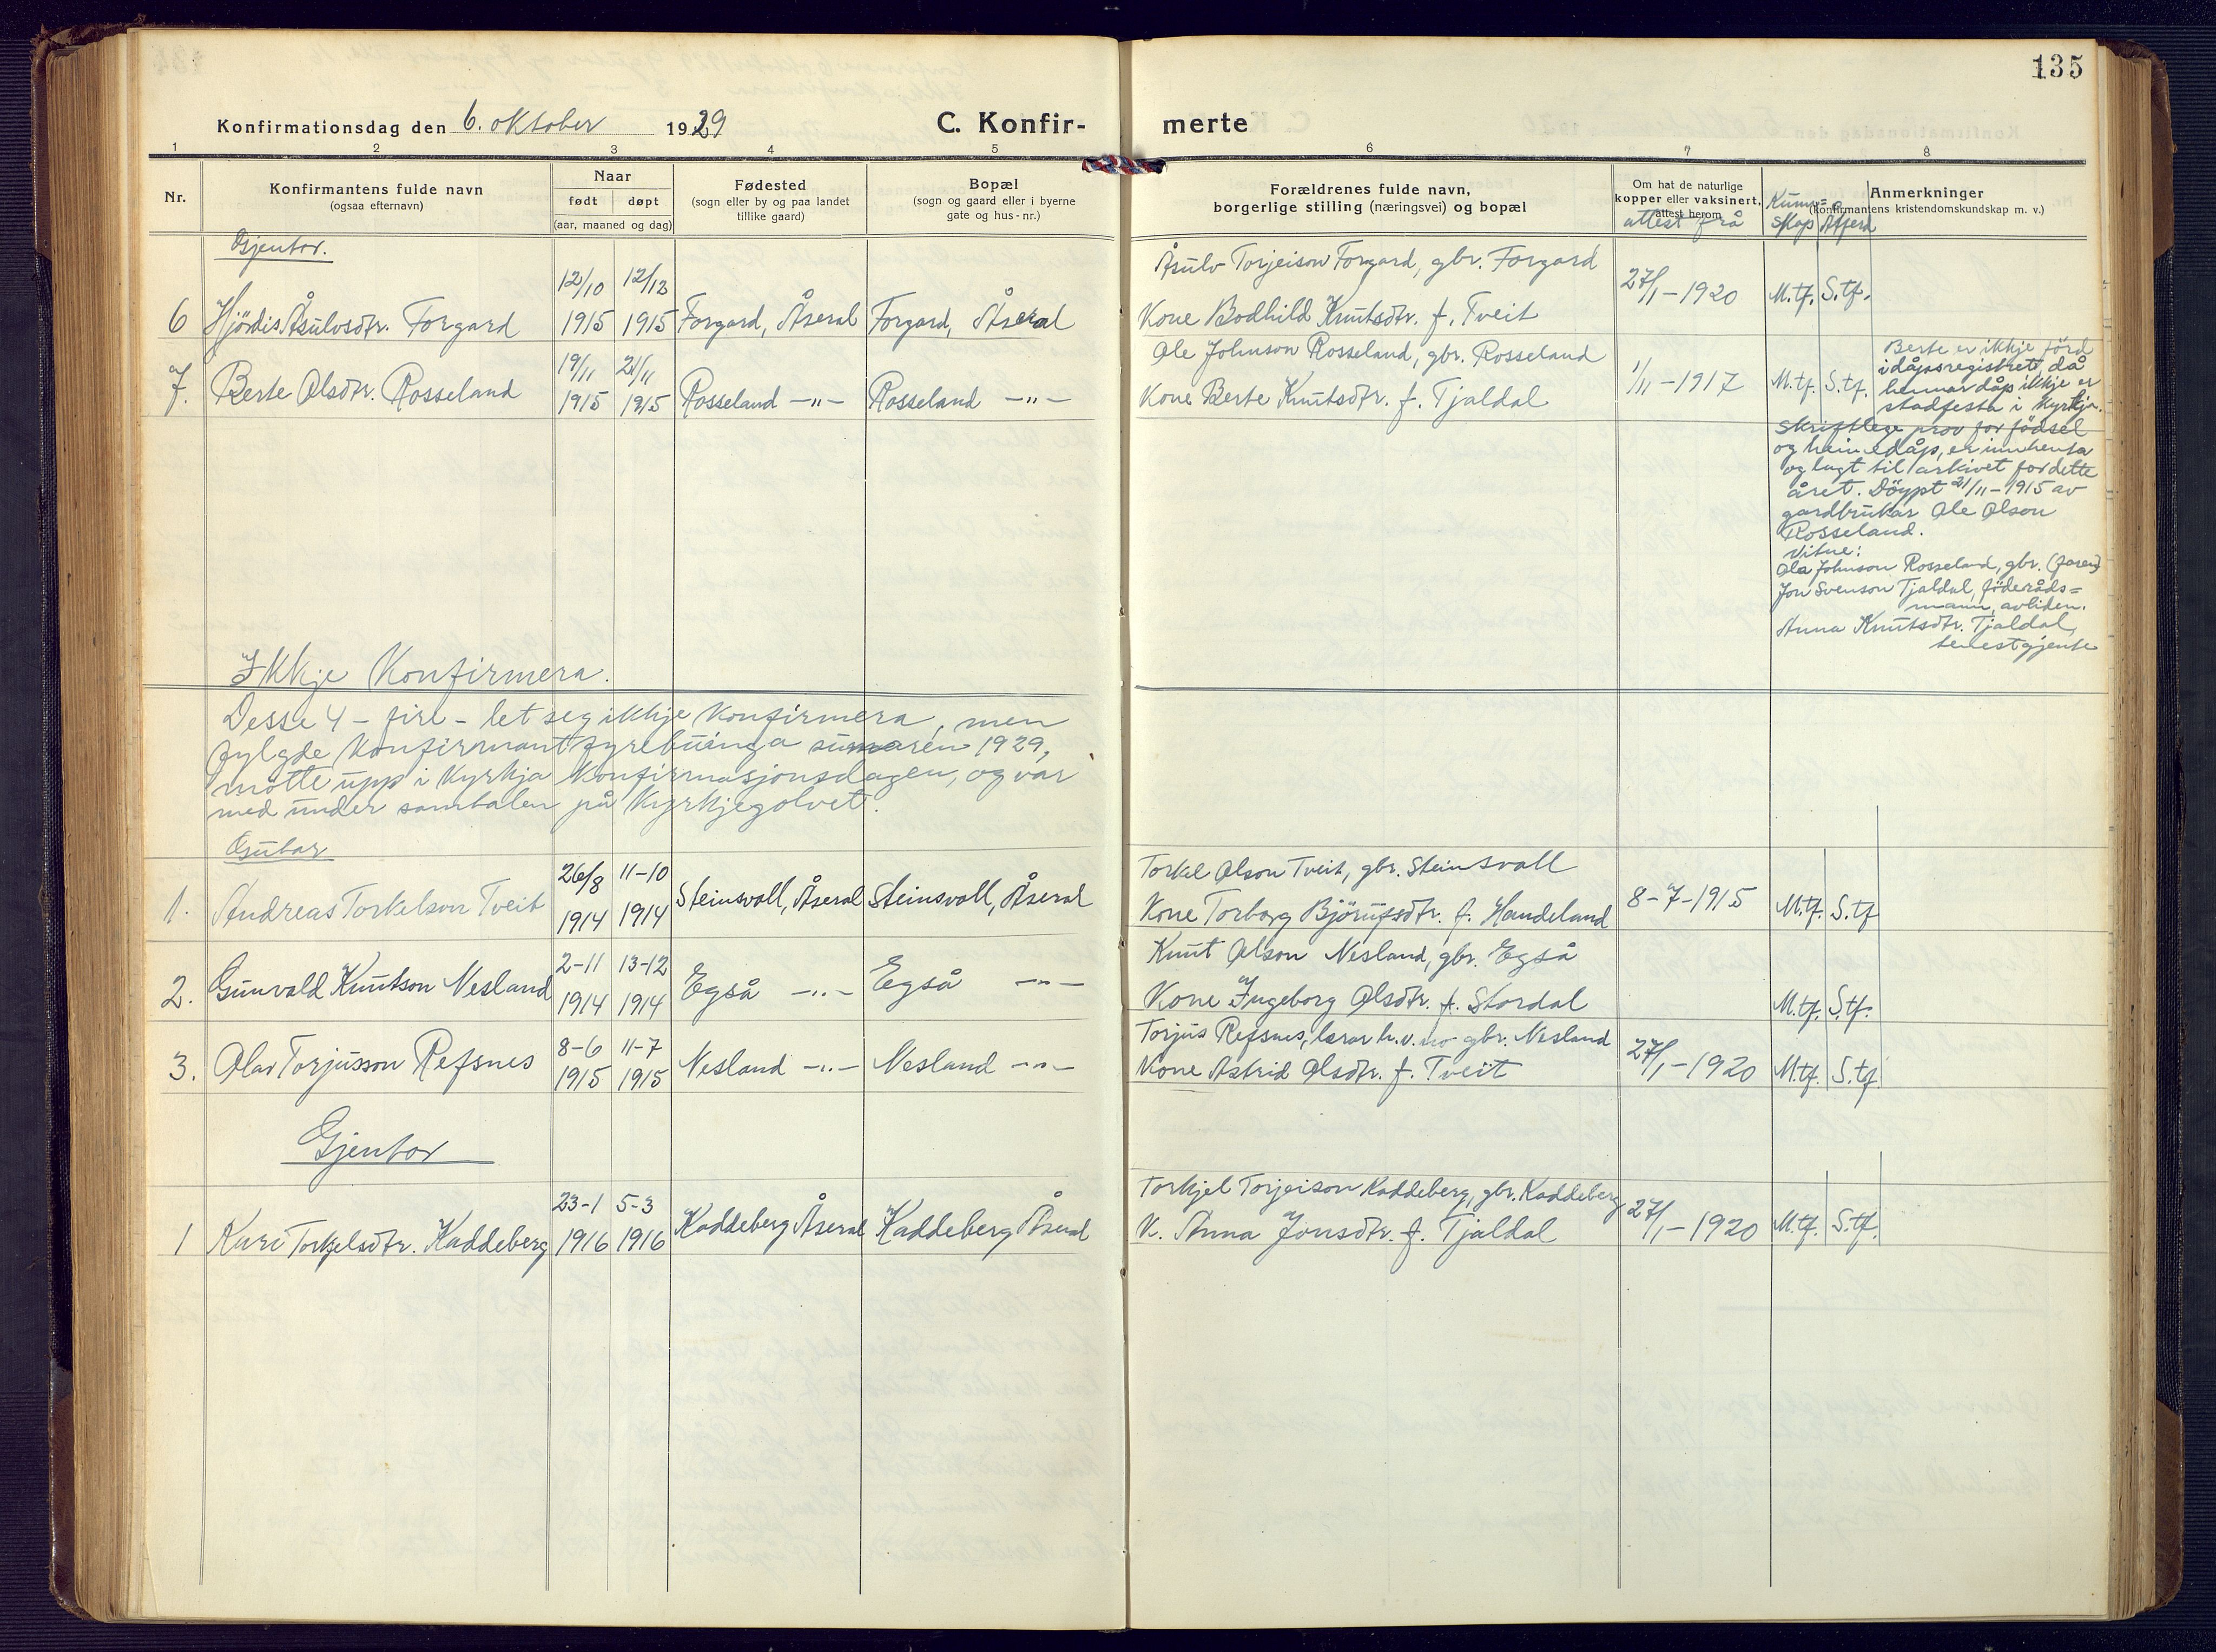 135
Konfirmationsdag den 6. oktober 1929
C. Konfir-merte
1 2 3 4 5 6 7 8
Nr.
Konfirmantens fulde navn
(ogsaa efternavn)
Naar
født døpt
(aar, maaned og dag)
Fødested
(sogn eller by og paa landet
tillike gaard)
Bopæl
(sogn og gaard eller i byerne
gate og hus-nr.)
Forældrenes fulde navn,
borgerlige stilling (næringsvei) og bopæl
Om hat de naturlige
kopper eller vaksinert,
attest herom
attest frå
Kunn=
skap Åtferd
Anmerkninger
(konfirmantens kristendomskundskap m. v.)
Gjentor.
12/10 12/12
Åsulv Torjeison Forgard, gbr. Forgard
27/1-1920 M.tf. S.tf.
6 Hjördis Åsulvsdtr. Forgard 1915 1915 Forgard, Åseral Forgard, Åseral
Kone Bodhild Knutsdtr. f. Tveit
19/11 21/11
Ole Johnson Rosseland, gbr. Rosseland
7. Berte Olsdtr. Rosseland 1915 1915 Rosseland -"- Rosseland -"-
Kone Berte Knutsdtr. f. Tjaldal
1/11-1917 M.tf. S.tf.
Berte er ikkje förd
i dåpsregistret, då
hennar dåp ikkje er
stadfesta i kyrkja.
Skriftlege prov for födsel
og heimedåp, er innhenta
og lagt til arkivet for dette
året. Döypt 21/11-1915 av
gardbrukar Ole Olson
Rosseland.
Vitne:
Ola Johnson Rosseland, gbr. (faren)
Jon Svenson Tjaldal, föderåds=
mann, avliden.
Anna Knutsdtr. Tjaldal,
tenestgjente
Ikkje Konfirmera.
Desse 4 - fire - let seg ikkje konfirmera, men
fylgde konfirmantfyrebuinga sumaren 1929,
møtte upp i kyrkja konfirmasjonsdagen, og var
med under samtalen på kyrkjegolvet.
Gutar
26/8 11-10
Torkel Olson Tveit, gbr. Steinsvoll
1. Andreas Torkelson Tveit 1914 1914 Steinsvoll, Åseral Steinsvoll, Åseral
Kone Torborg Björufsdtr. f. Handeland
8-7-1915 M.tf. S.tf
2-11 13-12
Knut Olson Nesland, gbr. Egså
2. Gunvald Knutson Nesland 1914 1914 Egså -"- Egså -"-
Kone Ingeborg Olsdtr. f. Stordal
M.tf. S.tf.
8-6 11-7
Torjus Refsnes, lærar h.v. no gbr. Nesland
3. Olav Torjusson Refsnes 1915 1915 Nesland -"- Nesland -"-
Kone Astrid Olsdtr. f. Tveit
27/1-1920 M.tf. S.tf
Gjentor
23-1 5-3
Torkjel Torjeison Kaddeberg, gbr. Kaddeberg
1 Kari Torkjelsdtr. Kaddeberg 1916 1916 Kaddeberg Åseral Kaddeberg Åseral
K. Anna Jonsdtr. f. Tjaldal
27/1-1920 M.tf. S.tf.